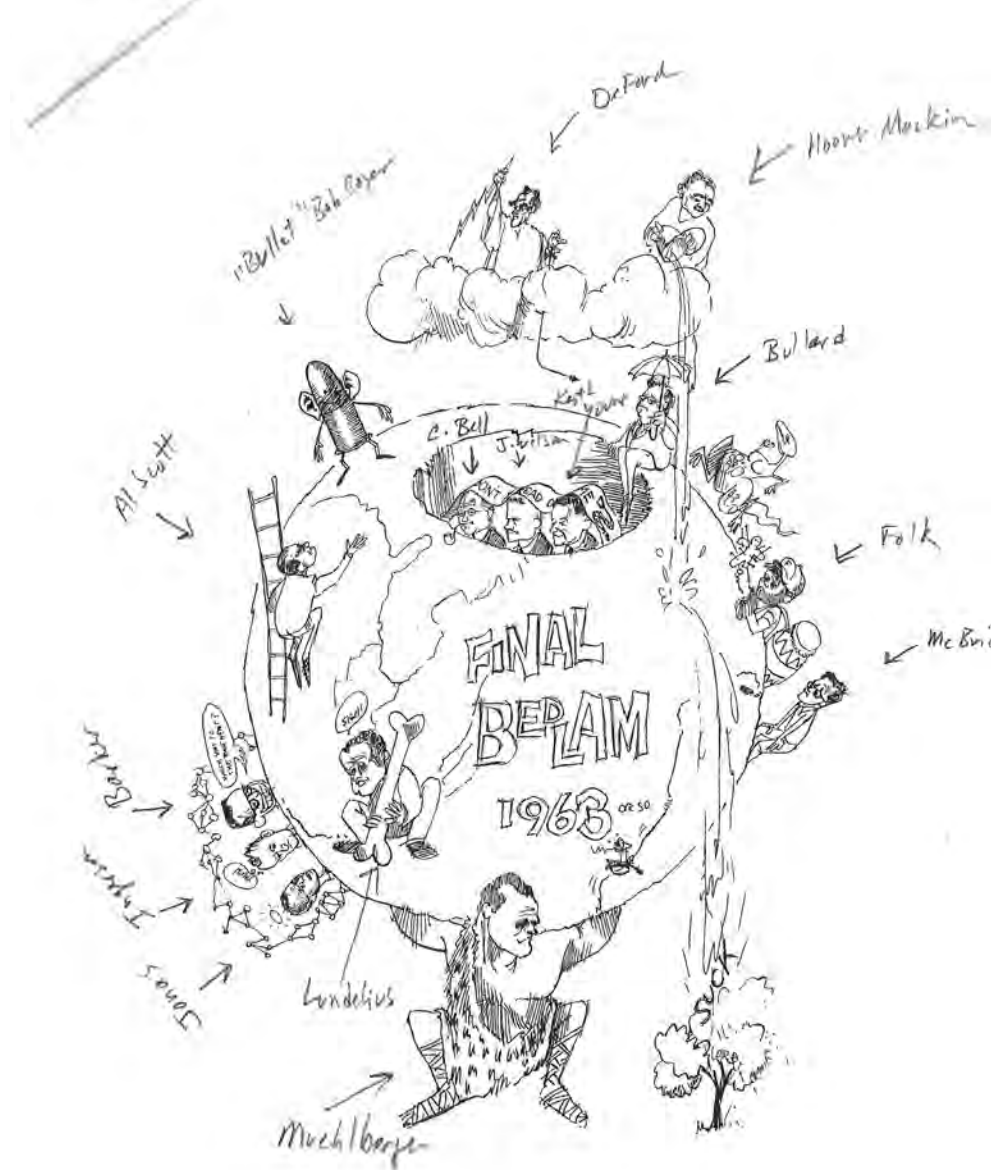 DeFord
Hoover Mackin
"Bullet" Bob Boyer
Bullard
Keith
Young
C. Bell
J. Wilson
Al Scott
Folk
FINAL
BEDLAM
1963 OR SO
Barker
Ingerson
Jonas
Lundelius
Muehlberger